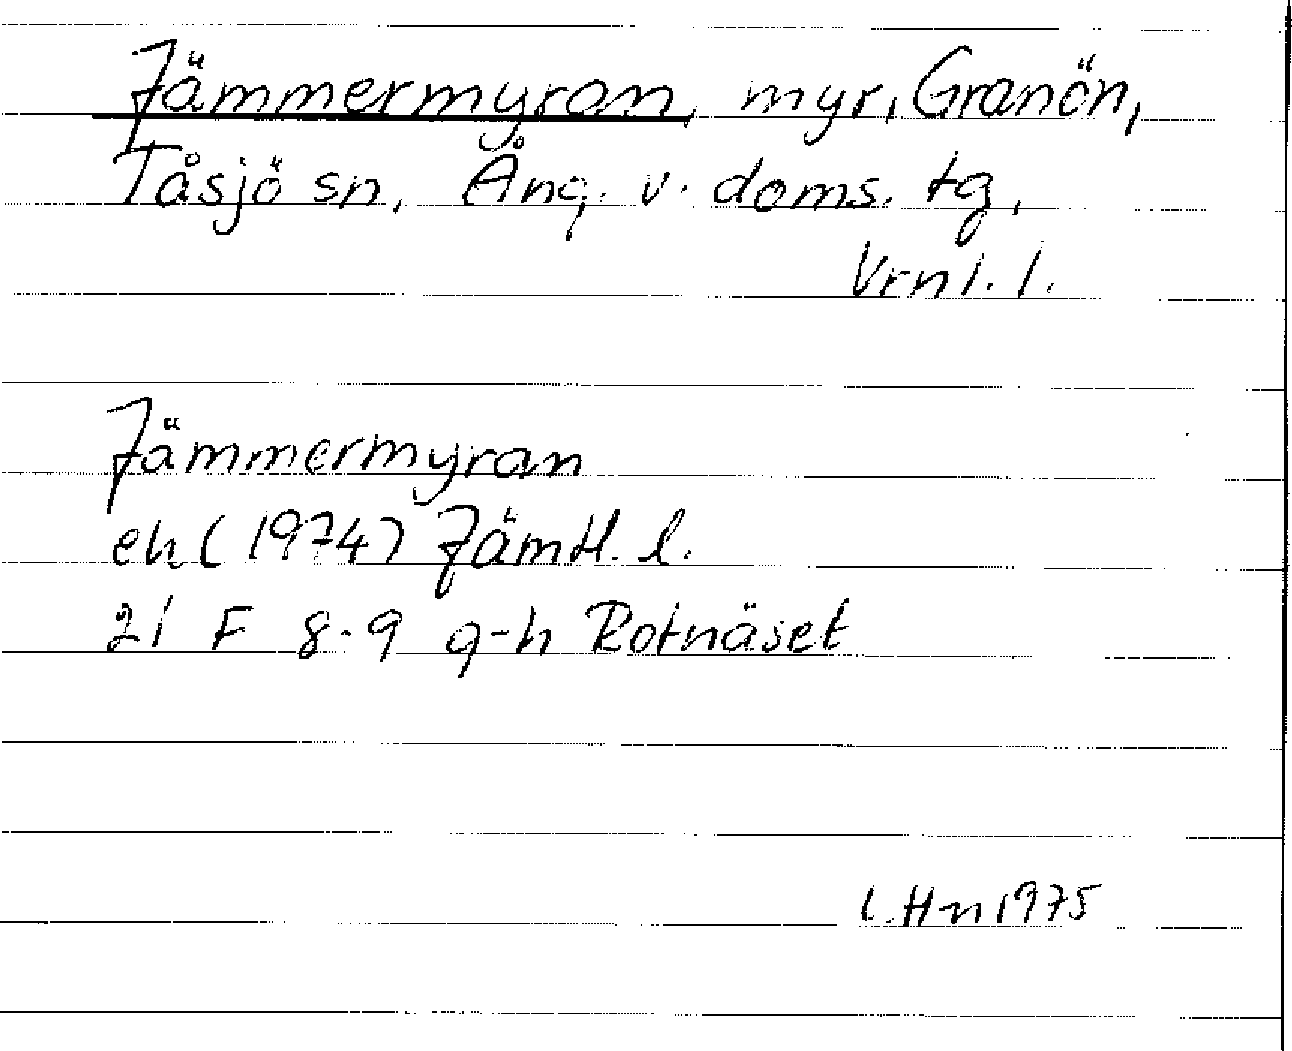 Jämmermyran, myr, Granön,
Tåsjö sn, Ång. v. doms. tg,
Vrnl. l.
Jämmermyran
ek (1974) Jämtl. l.
21 F 8-9 g-h Rotnäset
L.Hn 1975